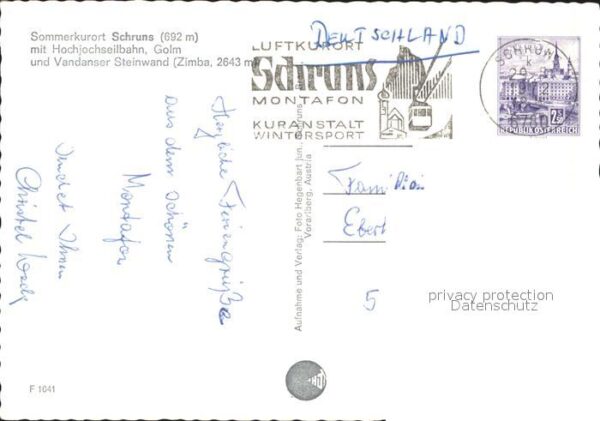 Sommerkurort Schruns (692 m)
mit Hochjochseilbahn, Golm
und Vandanser Steinwand (Zimba, 2643 m)
DEUTSCHLAND
LUFTKURORT
Schruns
MONTAFON
KURANSTALT
WINTERSPORT
SCHRUNS
REPUBLIK ÖSTERREICH
Herzliche Feriengrüße
aus dem schönen
Montafon
sendet Ihnen
Christel
Aufnahme und Verlag: Foto Hegenbart jun., Schruns
Vorarlberg, Austria
Familie
Ebert
5
privacy protection
Datenschutz
F 1041